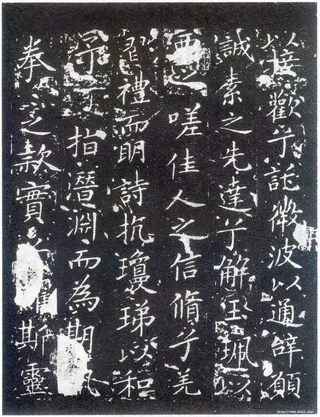 以接歡兮託微波以通辭願
誠素之先達兮解玉珮以
要之嗟佳人之信脩兮羌
習禮而明詩抗瓊珶以和
予兮指潛淵而為期執
之款實懼斯靈